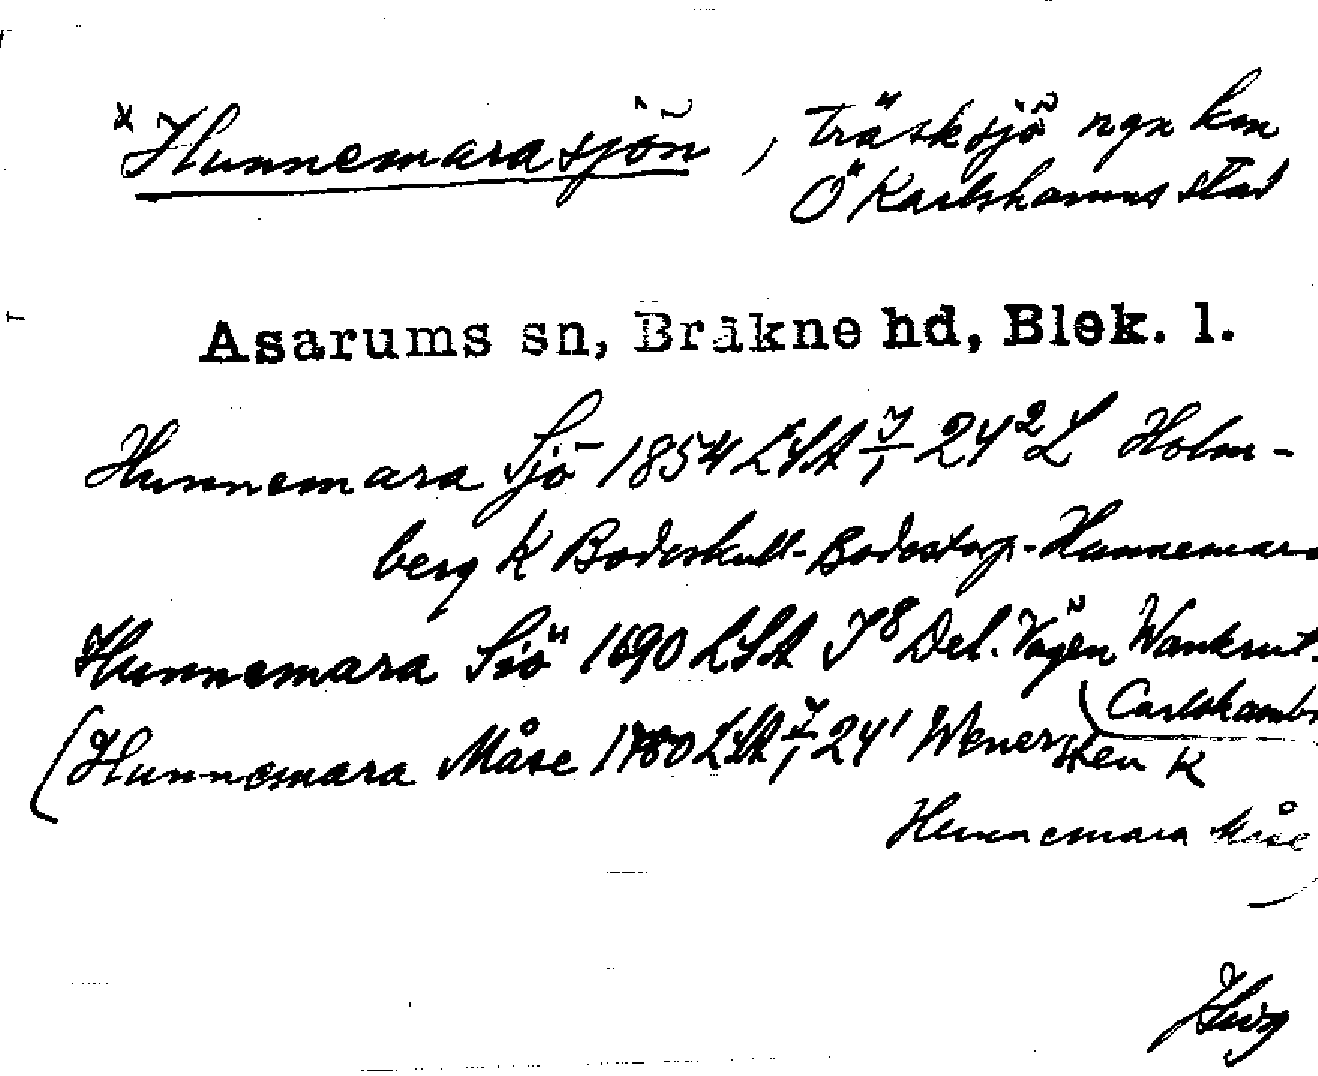 * Hunnemarasjön, träsksjö ngn km
Ö Karlshamns stad
Asarums sn, Bräkne hd, Blek. l.
Hunnemara Sjö 1854 LSA 7/1 24² L Holm-
berg K Bodeskull-Bodestorp-Hunnemara
Hunnemara Siö 1690 LSA I8 Del. Vägen
(Hunnemara Måse 1780 LSA 7/1 24¹ Wenersten K
Hunnemara Måse